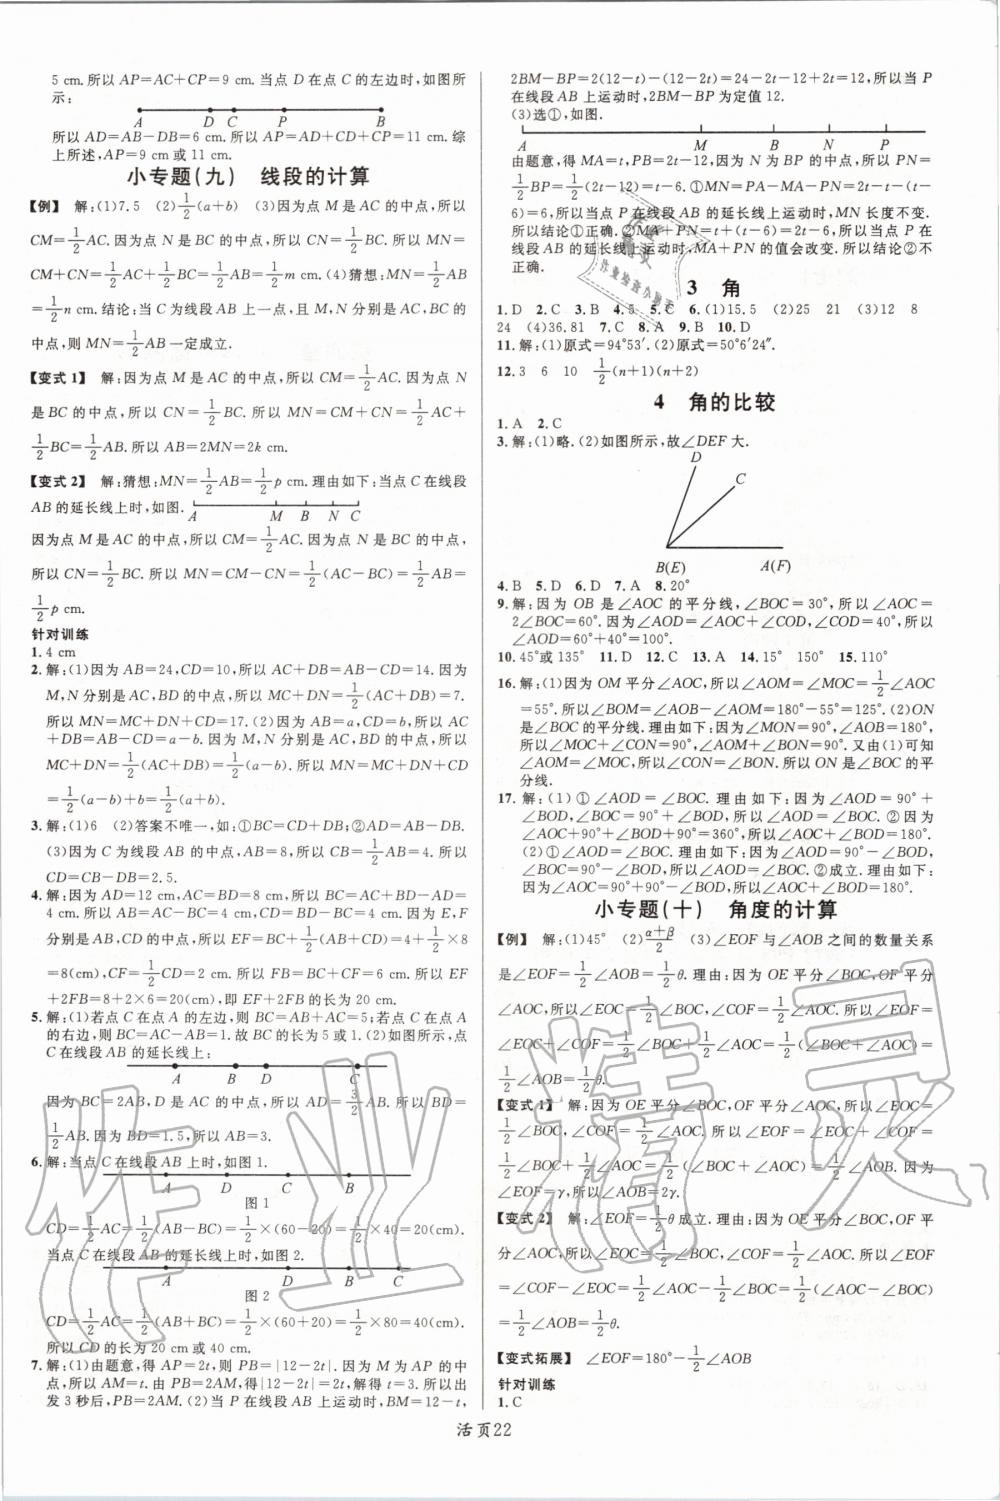 5 cm.所以 AP=AC+CP=9 cm.当点 D 在点 C 的左边时,如图所
示:
A D C P B
所以 AD=AB-DB=6 cm.所以 AP=AD+CD+CP=11 cm.综
上所述,AP=9 cm 或 11 cm.
小专题(九) 线段的计算
【例】 解:(1)7.5 (2)1/2(a+b) (3)因为点 M 是 AC 的中点,所以
CM=1/2AC.因为点 N 是 BC 的中点,所以 CN=1/2BC.所以 MN=
CM+CN=1/2AC+1/2BC=1/2AB=1/2m cm.(4)猜想:MN=1/2AB
=1/2n cm.结论:当 C 为线段 AB 上一点,且 M,N 分别是 AC,BC 的
中点,则 MN=1/2AB 一定成立.
【变式 1】 解:因为点 M 是 AC 的中点,所以 CM=1/2AC.因为点 N
是 BC 的中点,所以 CN=1/2BC.所以 MN=CM+CN=1/2AC+
1/2BC=1/2AB.所以 AB=2MN=2k cm.
【变式 2】 解:猜想:MN=1/2AB=1/2p cm.理由如下:当点 C 在线段
AB 的延长线上时,如图.
A M B N C
因为点 M 是 AC 的中点,所以 CM=1/2AC.因为点 N 是 BC 的中点,
所以 CN=1/2BC.所以 MN=CM-CN=1/2(AC-BC)=1/2AB=
1/2p cm.
针对训练
1.4 cm
2.解:(1)因为 AB=24,CD=10,所以 AC+DB=AB-CD=14.因为
M,N 分别是 AC,BD 的中点,所以 MC+DN=1/2(AC+DB)=7.
所以 MN=MC+DN+CD=17.(2)因为 AB=a,CD=b,所以 AC
+DB=AB-CD=a-b.因为 M,N 分别是 AC,BD 的中点,所以
MC+DN=1/2(AC+DB)=1/2(a-b).所以 MN=MC+DN+CD
=1/2(a-b)+b=1/2(a+b).
3.解:(1)6 (2)答案不唯一,如:①BC=CD+DB;②AD=AB-DB.
(3)因为 C 为线段 AB 的中点,AB=8,所以 CB=1/2AB=4.所以
CD=CB-DB=2.5.
4.解:因为 AD=12 cm,AC=BD=8 cm,所以 BC=AC+BD-AD=
4 cm.所以 AB+CD=AD-BC=12-4=8(cm).因为 E,F
分别是 AB,CD 的中点,所以 EF=BC+1/2(AB+CD)=4+1/2×8
=8(cm),CF=1/2CD=2 cm.所以 FB=BC+CF=6 cm.所以 EF
+2FB=8+2×6=20(cm),即 EF+2FB 的长为 20 cm.
5.解:(1)若点 C 在点 A 的左边,则 BC=AB+AC=5;若点 C 在点 A
的右边,则 BC=AC-AB=1.故 BC 的长为 5 或 1.(2)如图所示,点
C 在线段 AB 的延长线上:
A B D C
因为 BC=2AB,D 是 AC 的中点,所以 AD=3/2AB.所以 BD=
1/2AB.因为 BD=1.5,所以 AB=3.
6.解:当点 C 在线段 AB 上时,如图 1.
A D C B
图 1
CD=1/2AC=1/2(AB-BC)=1/2×(60-20)=1/2×40=20(cm).
当点 C 在线段 AB 的延长线上时,如图 2.
A D B C
图 2
CD=1/2AC=1/2(AB+BC)=1/2×(60+20)=1/2×80=40(cm).
所以 CD 的长为 20 cm 或 40 cm.
7.解:(1)由题意,得 AP=2t,则 PB=|12-2t|.因为 M 为 AP 的中
点,所以 AM=t.由 PB=2AM,得|12-2t|=2t,解得 t=3.所以出
发 3 秒后,PB=2AM.(2)当 P 在线段 AB 上运动时,BM=12-t,
2BM-BP=2(12-t)-(12-2t)=24-2t-12+2t=12,所以当 P
在线段 AB 上运动时,2BM-BP 为定值 12.
(3)选①,如图.
A M B N P
由题意,得 MA=t,PB=2t-12,因为 N 为 BP 的中点,所以 PN=
1/2BP=1/2(2t-12)=t-6.①MN=PA-MA-PN=2t-t-(t-
6)=6,所以当点 P 在线段 AB 的延长线上运动时,MN 长度不变.
所以结论①正确.②MA+PN=t+(t-6)=2t-6.所以当点 P 在
线段 AB 的延长线上运动时,MA+PN 的值会改变.所以结论②不
正确.
3 角
1.D 2.C 3.B 4.5 5.C 6.(1)15.5 (2)25 21 (3)12 8
24 (4)36.81 7.C 8.A 9.B 10.D
11.解:(1)原式=94°53′.(2)原式=50°6′24″.
12.3 6 10 1/2(n+1)(n+2)
4 角的比较
1.A 2.C
3.解:(1)略.(2)如图所示,故∠DEF 大.
D
C
B(E) A(F)
4.B 5.D 6.D 7.A 8.20°
9.解:因为 OB 是∠AOC 的平分线,∠BOC=30°,所以∠AOC=
2∠BOC=60°.因为∠AOD=∠AOC+∠COD,∠COD=40°,所以
∠AOD=60°+40°=100°.
10.45°或 135° 11.D 12.C 13.A 14.15° 150° 15.110°
16.解:(1)因为 OM 平分∠AOC,所以∠AOM=∠MOC=1/2∠AOC
=55°.所以∠BOM=∠AOB-∠AOM=180°-55°=125°.(2)ON
是∠BOC 的平分线.理由如下:因为∠MON=90°,∠AOB=180°,
所以∠MOC+∠CON=90°,∠AOM+∠BON=90°.又由(1)可知
∠AOM=∠MOC,所以∠CON=∠BON.所以 ON 是∠BOC 的平
分线.
17.解:(1)①∠AOD=∠BOC.理由如下:因为∠AOD=90°+
∠BOD,∠BOC=90°+∠BOD,所以∠AOD=∠BOC.②因为
∠AOC+90°+∠BOD+90°=360°,所以∠AOC+∠BOD=180°.
(2)①∠AOD=∠BOC.理由如下:因为∠AOD=90°-∠BOD,
∠BOC=90°-∠BOD,所以∠AOD=∠BOC.②成立.理由如下:
因为∠AOC=90°+90°-∠BOD,所以∠AOC+∠BOD=180°.
小专题(十) 角度的计算
【例】 解:(1)45° (2)(α+β)/2 (3)∠EOF 与∠AOB 之间的数量关系
是∠EOF=1/2∠AOB=1/2θ.理由:因为 OE 平分∠AOC,OF 平分
∠BOC,所以∠EOC=1/2∠AOC,∠COF=1/2∠BOC.所以∠EOF=
∠EOC+∠COF=1/2∠AOC+1/2∠BOC=1/2(∠AOC+∠BOC)=
1/2∠AOB=1/2θ.
【变式 1】 解:因为 OE 平分∠AOC,OF 平分∠BOC,所以∠EOC=
1/2∠AOC,∠COF=1/2∠BOC.所以∠EOF=∠EOC+∠COF=
1/2∠AOC+1/2∠BOC=1/2(∠AOC+∠BOC)=1/2∠AOB.因为
∠EOF=γ,所以∠AOB=2γ.
【变式 2】 解:∠EOF=1/2θ 成立.理由:因为 OE 平分∠AOC,OF 平
分∠BOC,所以∠EOC=1/2∠AOC,∠COF=1/2∠BOC.所以∠EOF
=∠COF-∠EOC=1/2∠BOC-1/2∠AOC=1/2(∠BOC-∠AOC)=
1/2∠AOB=1/2θ.
【变式拓展】 ∠EOF=180°-1/2∠AOB
针对训练
1.C
活页22
作业精灵